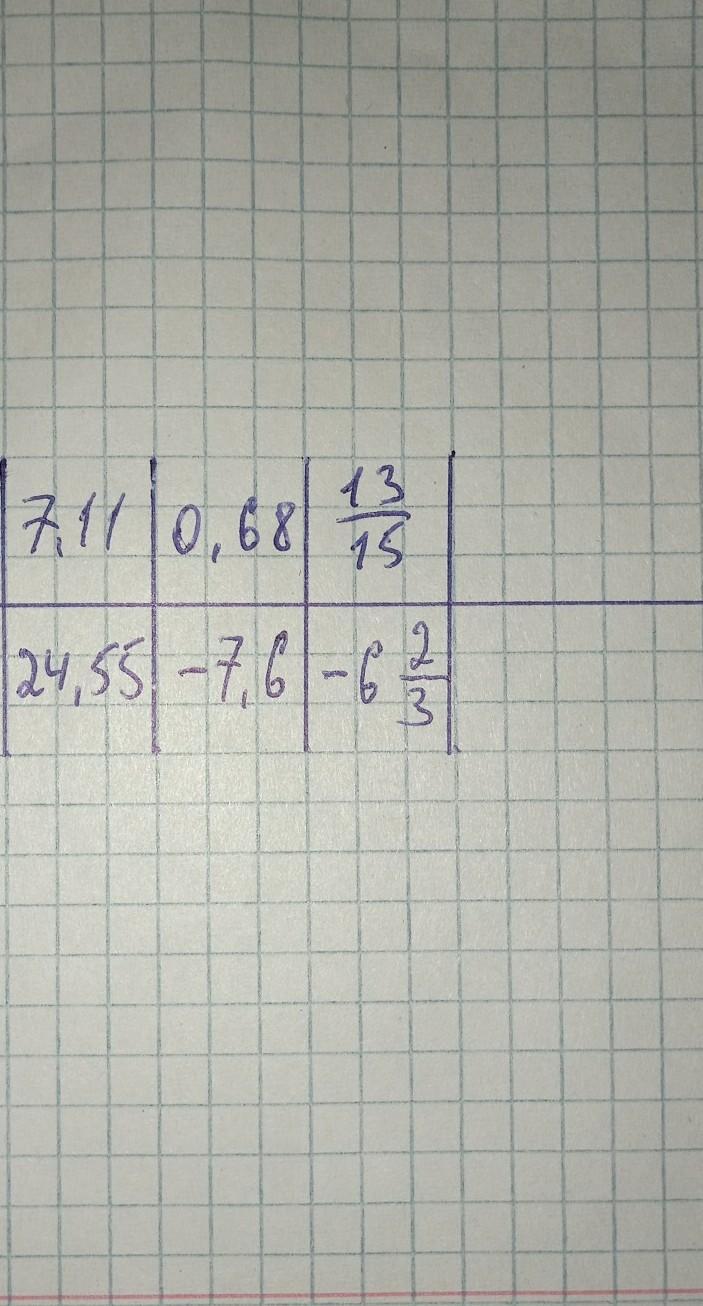 7,11 | 0,68 | 13/15
24,55 | -7,6 | -6 2/3